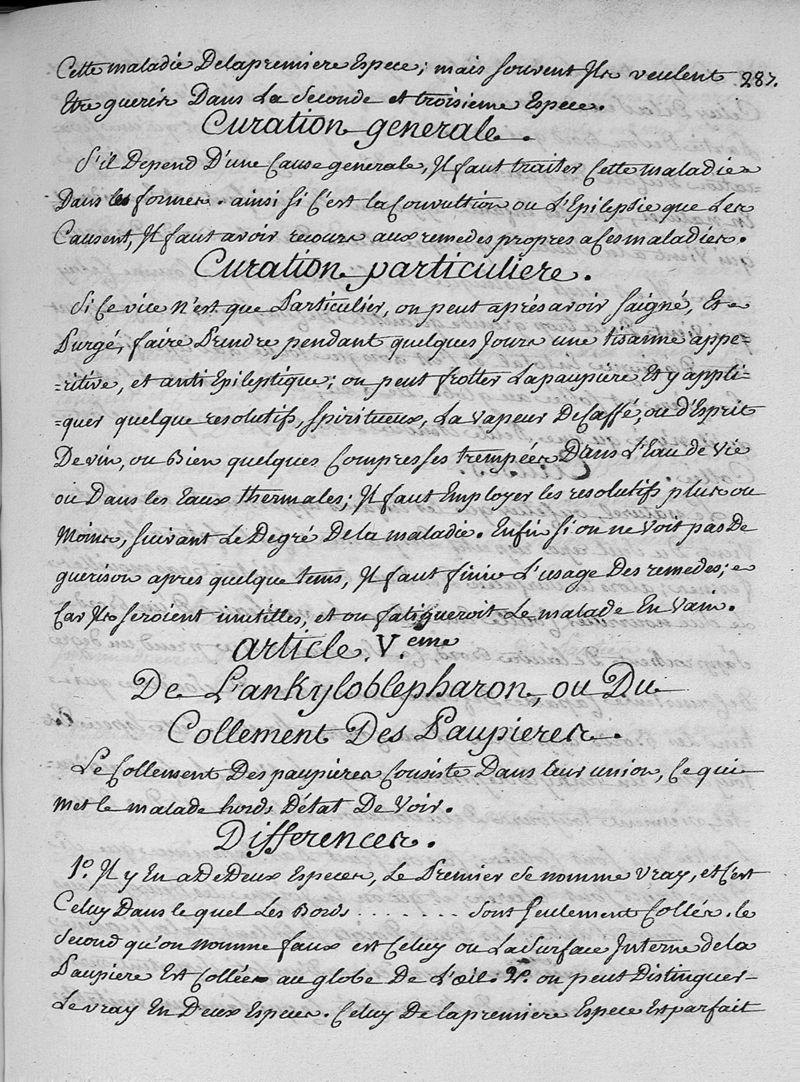 287.
Cette maladie De la premiere Espece; mais souvent Ils veulent
Etre gueris Dans La Seconde et troisieme Espece.
Curation generale.
S'il Depend D'une Cause generale, Il faut traiter Cette maladie
Dans les formes. ainsi si C'est la Convultion ou L'Epileptie que Les
Causent, Il faut avoir recours aux remedes propres a Ces maladies.
Curation particuliere.
Si Ce vice N'est que Particulier, on peut aprés avoir saigné, Et
Purgé, faire Prendre pendant quelques Jours une tisanne appe-
=ritive, et anti Epileptique; on peut frotter La paupiere Et y appli-
=quer quelque resolutifs, spiritueux, La vapeur De Caffé, ou d'Esprit
De vin, ou Bien quelques Compresses trempées Dans L'Eau de Vie
ou Dans les Eaux thermales; Il faut Employer les resolutifs plus ou
Moins, suivant Le Degré De la maladie. Enfin si on ne Voit pas De
guerison apres quelque tems, Il faut finir L'usage Des remedes;
Car Ils seroient inutilles, et on fatigueroit Le malade En Vain.
article V.eme
De L'ankyloblepharon, ou Du
Collement Des Paupieres.
Le Collement Des paupieres Consiste Dans leur union, Ce qui
Met le malade hords D'état De Voir.
Differences.
1.° Il y En a De Deux Especes, Le Premier se nomme Vray, et C'est
Celuy Dans le quel Les Bords ....... sont seulement Collés. le
Second qu'on nomme faux est Celuy ou La Surface Interne de la
Paupiere Est Collée au globe De L'œil. 2.° on peut Distinguer
Le vray En Deux Especes. Celuy De la premiere Espece Est parfait